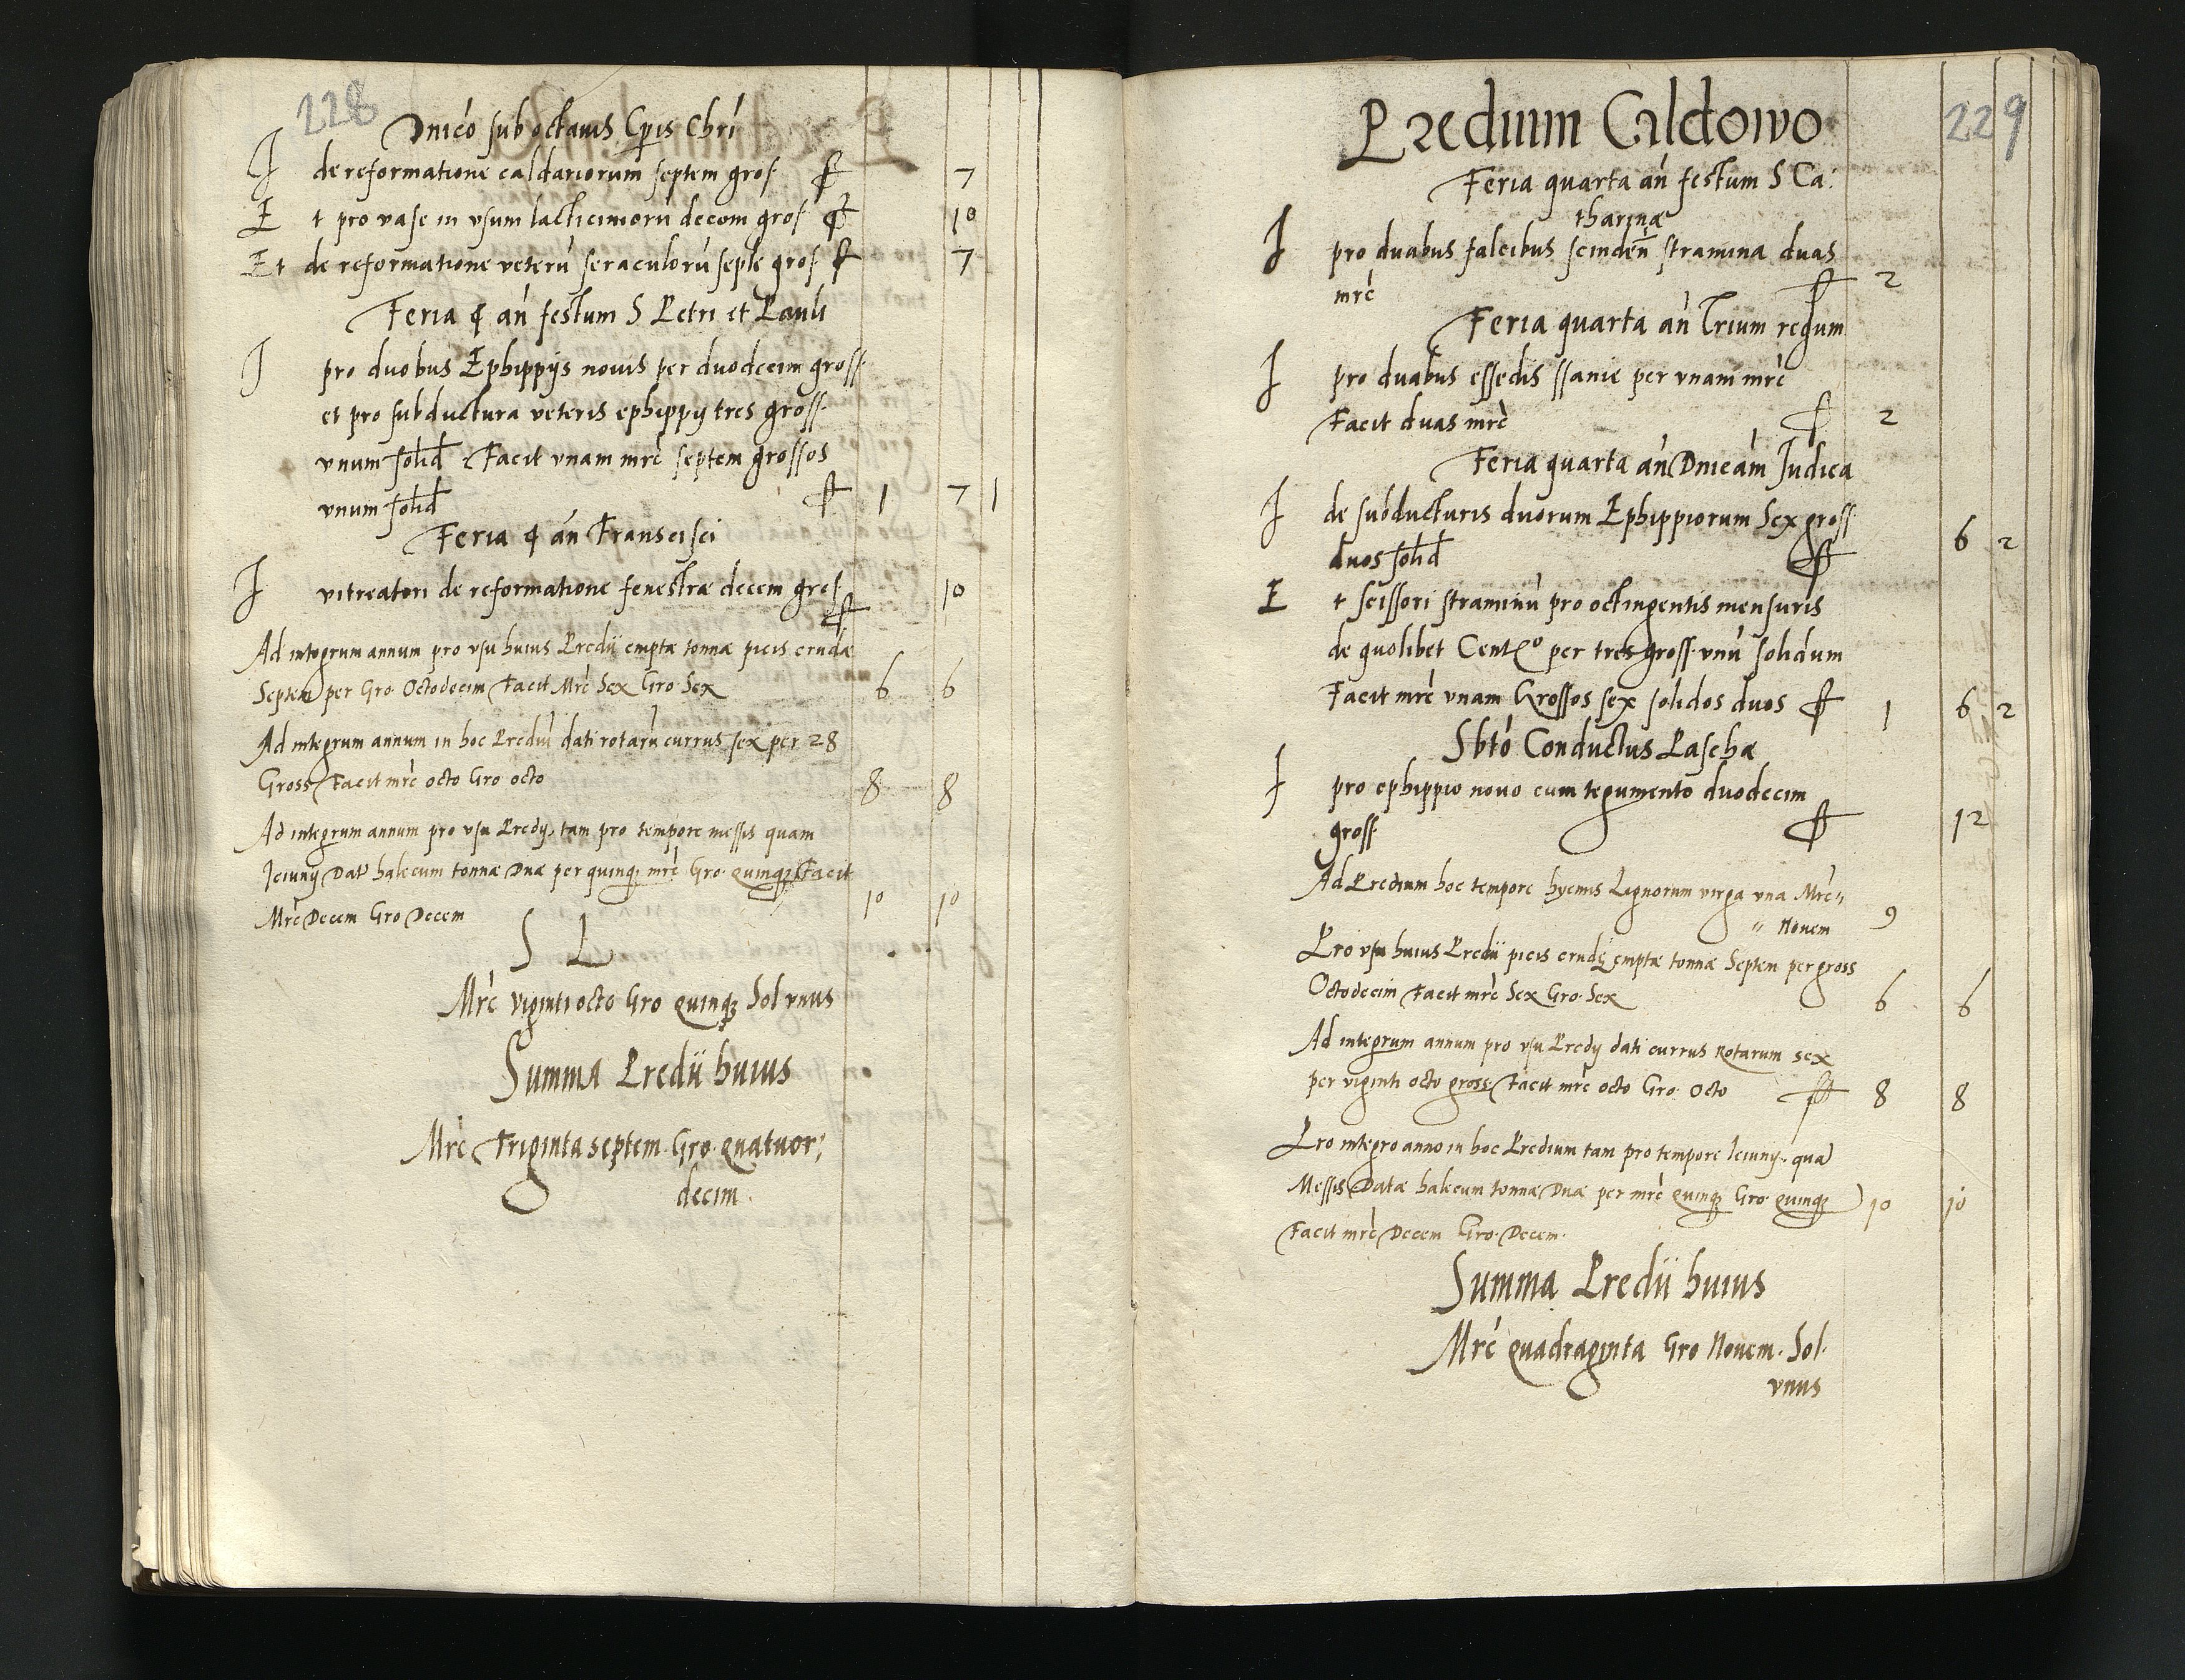 228
Dnico sub octauis Cpis Chri
I de reformatione caldariorum septem gros f 7
E t pro vase in vsum lacticiniorú decem gros f 10
Et de reformatione veterú seraculorú septe gros f 7
Feria 4 an festum S Petri et Pauli
I pro duobus Ephippijs nouis per duodecim gross
et pro subductura veteris ephippij tres gross
vnum solid Facit vnam mrc septem grossos
vnum solid f 1 7 1
Feria 4 an Francisci
I vitreatori de reformatione fenestræ decem gros f 10
Ad integrum annum pro vsu huius Predij emptæ tonnæ picis crudæ
Septem per Gro. Octodecim Facit Mrc Sex Gro Sex 6 6
Ad integrum annum in hoc Prediu dati rotarú currus sex per 28
Gross Facit mrc octo Gro octo 8 8
Ad integrum annum pro vsu Predij, tam pro tempore messis quam
Ieiunij Dat halecum tonnæ Duæ per quinq; mrc Gro. quinq; Facit
Mrc Decem Gro Decem 10 10
S L
Mrc viginti octo Gro quinq; Sol vnus
Summa Predii huius
Mrc Triginta septem. Gro. quatuor,
decim.
229
Predium Cildowo
Feria quarta an festum S Ca:
tharinæ
I pro duabus falcibus scinden stramina duas
mrc f 2
Feria quarta an Trium regum
I pro duabus essedis ssanie per vnam mrc
Facit duas mrc f 2
Feria quarta an Dnicam Iudica
I de subducturis duorum Ephippiorum Sex gross
duos solid f 6 2
E t scissori straminú pro octingentis mensuris
de quolibet Cent° per tres gross vnú solidum
Facit mrc vnam Grossos sex solidos duos f 1 6 2
Sbto Conductus Paschæ
I pro ephippio nouo cum tegumento duodecim
gross f 12
Ad Predium hoc tempore hyemis Lignorum virga vna Mrc„
„ Nouem 9
Pro vsu huius Predii picis crudę emptæ tonnæ Septem per gross
Octodecim Facit mrc Sex Gro. Sex 6 6
Ad integrum annum pro vsu Predij dati currus Rotarum sex
per viginti octo gross Facit mrc octo Gro. Octo f 8 8
Pro integro anno in hoc Predium tam pro tempore Ieiunij. qua
Messis Datæ halecum tonnæ Duæ per mrc quinq; Gro quinq; 10 10
Facit mrc Decem Gro. Decem.
Summa Predii huius
Mrc quadraginta Gro Nouem. Sol.
vnus